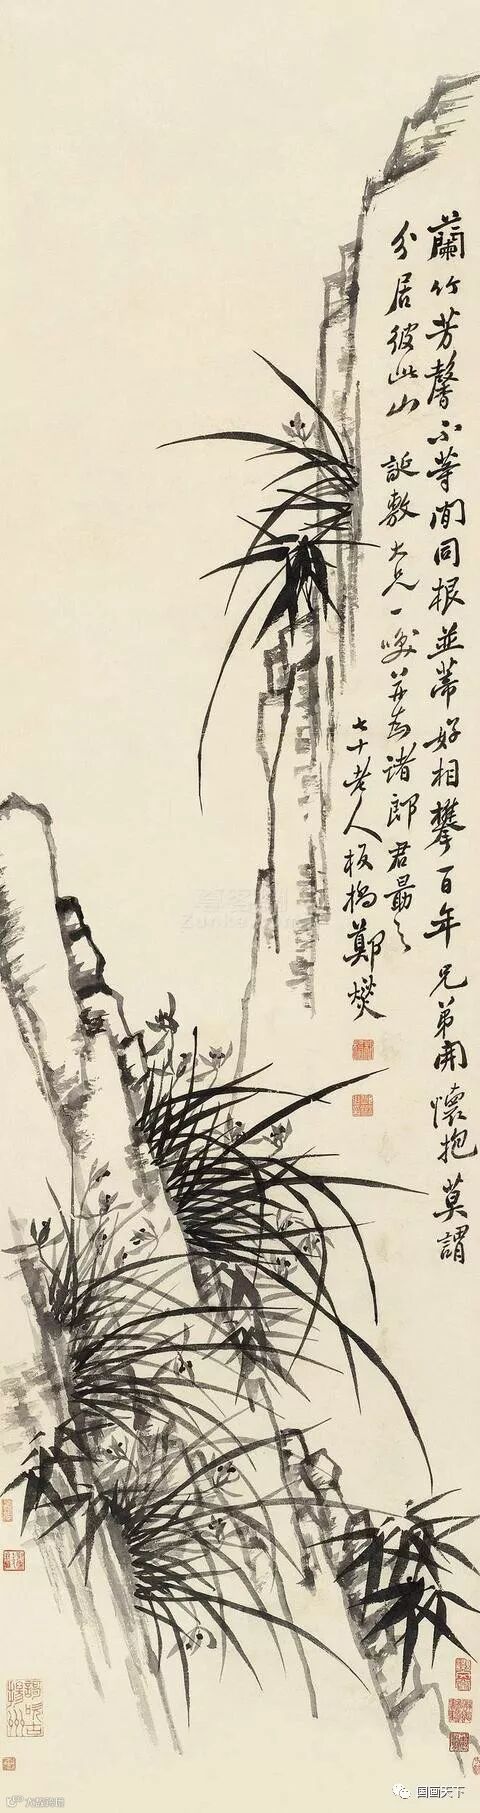 蘭竹芳馨不等閒同根並蒂好相攀百年兄弟開懷抱莫謂
分居彼此山 誕敷大兄一咲并為諸郎君勗之
七十老人板橋鄭燮
國画天下